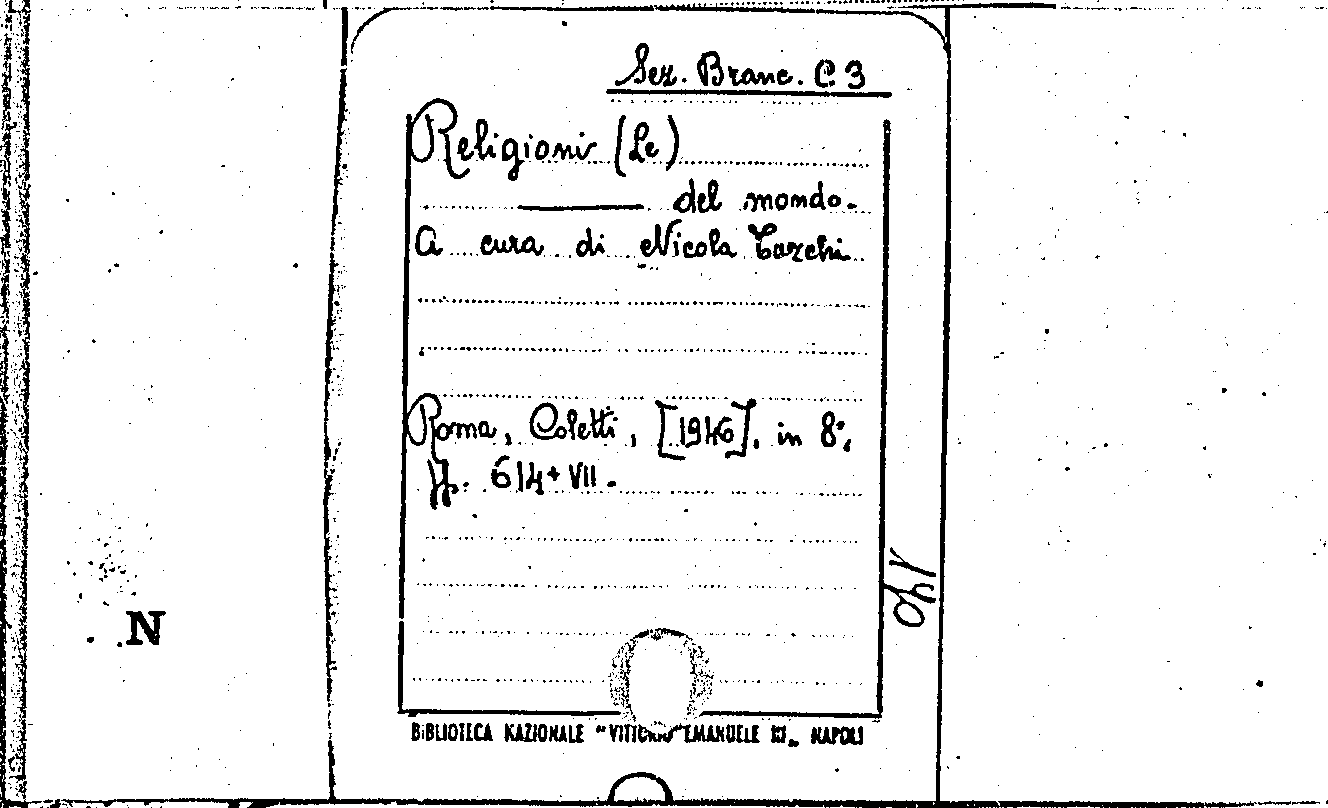 Sez. Branc. C 3
Religioni (Le)
——— del mondo.
A cura di Nicola Turchi
Roma, Coletti, [1946]. in 8°,
pp. 614 + VII.
N
BIBLIOTECA NAZIONALE "VITTORIO EMANUELE III„ NAPOLI